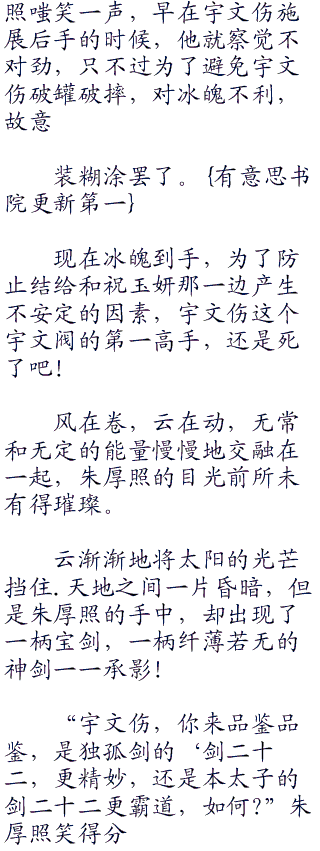 照嗤笑一声，早在宇文伤施
展后手的时候，他就察觉不
对劲，只不过为了避免宇文
伤破罐破摔，对冰魄不利，
故意
装糊涂罢了。{有意思书
院更新第一}
现在冰魄到手，为了防
止结给和祝玉妍那一边产生
不安定的因素，宇文伤这个
宇文阀的第一高手，还是死
了吧！
风在卷，云在动，无常
和无定的能量慢慢地交融在
一起，朱厚照的目光前所未
有得璀璨。
云渐渐地将太阳的光芒
挡住.天地之间一片昏暗，但
是朱厚照的手中，却出现了
一柄宝剑，一柄纤薄若无的
神剑一一承影！
“宇文伤，你来品鉴品
鉴，是独孤剑的‘剑二十
二，更精妙，还是本太子的
剑二十二更霸道，如何?”朱
厚照笑得分